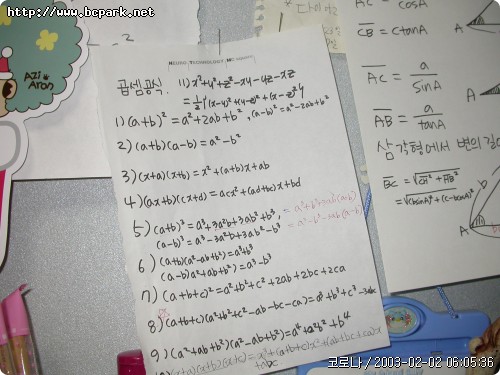 http://www.bcpark.net
Azi
Aron
곱셈공식.
11) x²+y²+z²-xy-yz-xz
= ½{(x-y)²+(y-z)²+(x-z)²}
1) (a+b)² = a²+2ab+b², (a-b)² = a²-2ab+b²
2) (a+b)(a-b) = a²-b²
3) (x+a)(x+b) = x²+(a+b)x+ab
4) (ax+b)(cx+d) = acx²+(ad+bc)x+bd
5) (a+b)³ = a³+3a²b+3ab²+b³, = a³+b³+3ab(a+b)
(a-b)³ = a³-3a²b+3ab²-b³ = a³-b³-3ab(a-b)
6) (a+b)(a²-ab+b²) = a³+b³
(a-b)(a²+ab+b²) = a³-b³
7) (a+b+c)² = a²+b²+c²+2ab+2bc+2ca
8) (a+b+c)(a²+b²+c²-ab-bc-ca) = a³+b³+c³-3abc
9) (a²+ab+b²)(a²-ab+b²) = a⁴+a²b²+b⁴
(x+a)(x+b)(x+c) = x³+(a+b+c)x²+(ab+bc+ca)x
+abc
cosA
CB = ctanA
AC = a/sinA
AB = a/tanA
삼각형에서 변의 길이
BC = √
A
A
코로나 / 2003-02-02 06:05:36